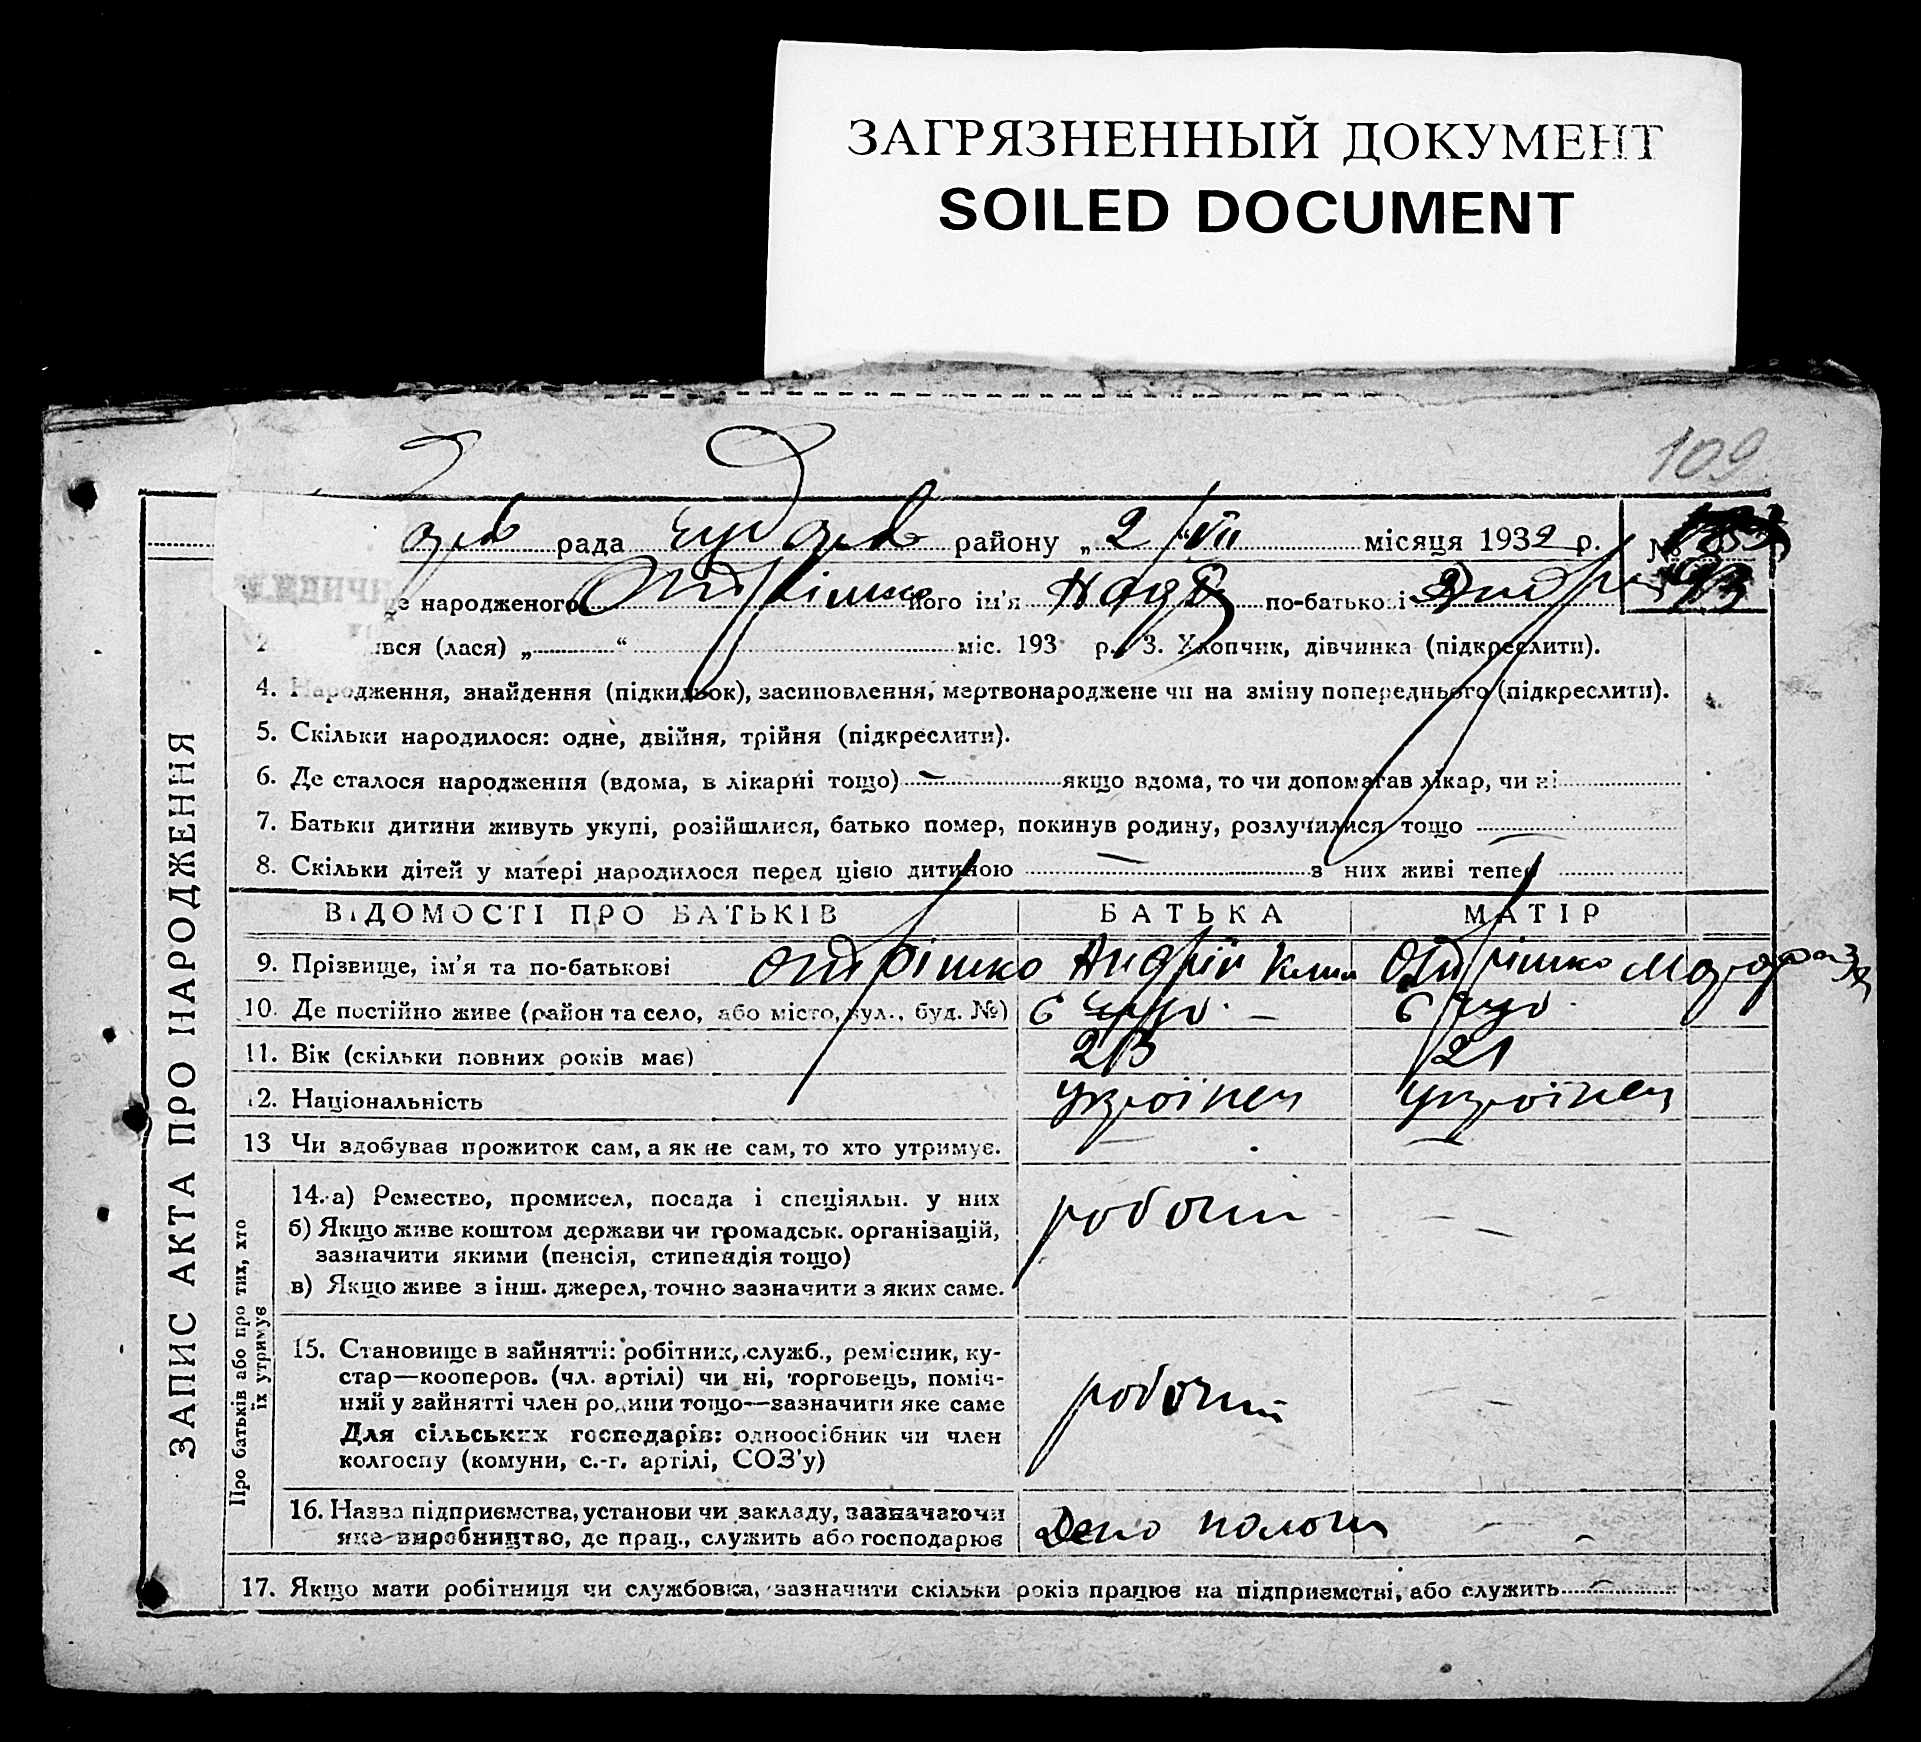 ЗАГРЯЗНЕННЫЙ ДОКУМЕНТ
SOILED DOCUMENT
109
рада району „2“ VII місяця 1932 р. №
народженого його ім'я Надія по-батькові
(лася) „ “ міс. 193 р. 3. Хлопчик, дівчинка (підкреслити).
4. Народження, знайдення (підкидьок), засиновлення, мертвонароджене чи на зміну попереднього (підкреслити).
5. Скільки народилося: одне, двійня, трійня (підкреслити).
6. Де сталося народження (вдома, в лікарні тощо) — якщо вдома, то чи допомагав лікар, чи ні
7. Батьки дитини живуть укупі, розійшлися, батько помер, покинув родину, розлучилися тощо —
8. Скільки дітей у матері народилося перед цією дитиною — з них живі тепер
ЗАПИС АКТА ПРО НАРОДЖЕННЯ
ВІДОМОСТІ ПРО БАТЬКІВ БАТЬКА МАТІР
9. Прізвище, ім'я та по-батькові Андрій
10. Де постійно живе (район та село, або місто, вул., буд. №)
11. Вік (скільки повних років має) 23 21
12. Національність українец українец
13 Чи здобував прожиток сам, а як не сам, то хто утримує. — —
Про батьків або про тих, хто їх утримує
14. а) Ремество, промисел, посада і спеціяльн. у них рабочий —
б) Якщо живе коштом держави чи громадськ. організацій,
зазначити якими (пенсія, стипендія тощо)
в) Якщо живе з інш. джерел, точно зазначити з яких саме.
15. Становище в зайнятті: робітник, служб., ремісник, ку-
стар—кооперов. (чл. артілі) чи ні, торговець, поміч-
ний у зайнятті член родини тощо—зазначити яке саме рабочий —
Для сільських господарів: одноосібник чи член
колгоспу (комуни, с.-г. артілі, СОЗ'у)
16. Назва підприємства, установи чи закладу, зазначаючи
яке виробництво, де прац., служить або господарює Депо —
17. Якщо мати робітниця чи службовка, зазначити скільки років працює на підприємстві, або служить —